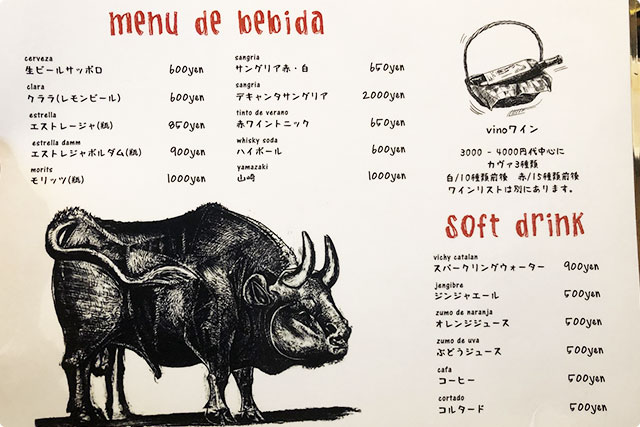 menu de bebida
cerveza
生ビールサッポロ 600yen
clara
クララ(レモンビール) 600yen
estrella
エストレージャ(瓶) 850yen
estrella damm
エストレジャボルダム(瓶) 900yen
morits
モリッツ(瓶) 1000yen
sangria
サングリア赤・白 650yen
sangria
デキャンタサングリア 2000yen
tinto de verano
赤ワイントニック 650yen
whisky soda
ハイボール 600yen
yamazaki
山崎 1000yen
vinoワイン
3000 - 4000円代中心に
カヴァ3種類
白/10種類前後 赤/15種類前後
ワインリストは別にあります。
soft drink
vichy catalan
スパークリングウォーター 900yen
jengibre
ジンジャエール 500yen
zumo de naranja
オレンジジュース 500yen
zumo de uva
ぶどうジュース 500yen
cafa
コーヒー 500yen
cortado
コルタード 500yen